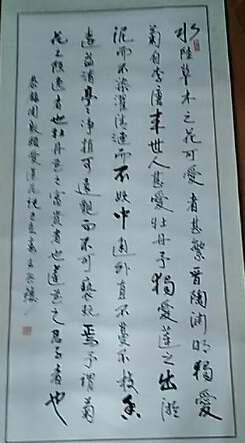 水陸草木之花可愛者甚繁晉陶淵明獨愛
菊自李唐來世人甚愛牡丹予獨愛蓮之出淤
泥而不染濯清漣而不妖中通外直不蔓不枝香
遠益清亭亭淨植可遠觀而不可褻玩焉予謂菊
花之隱逸者也牡丹花之富貴者也蓮花之君子者也
恭錄周敦頤愛蓮說